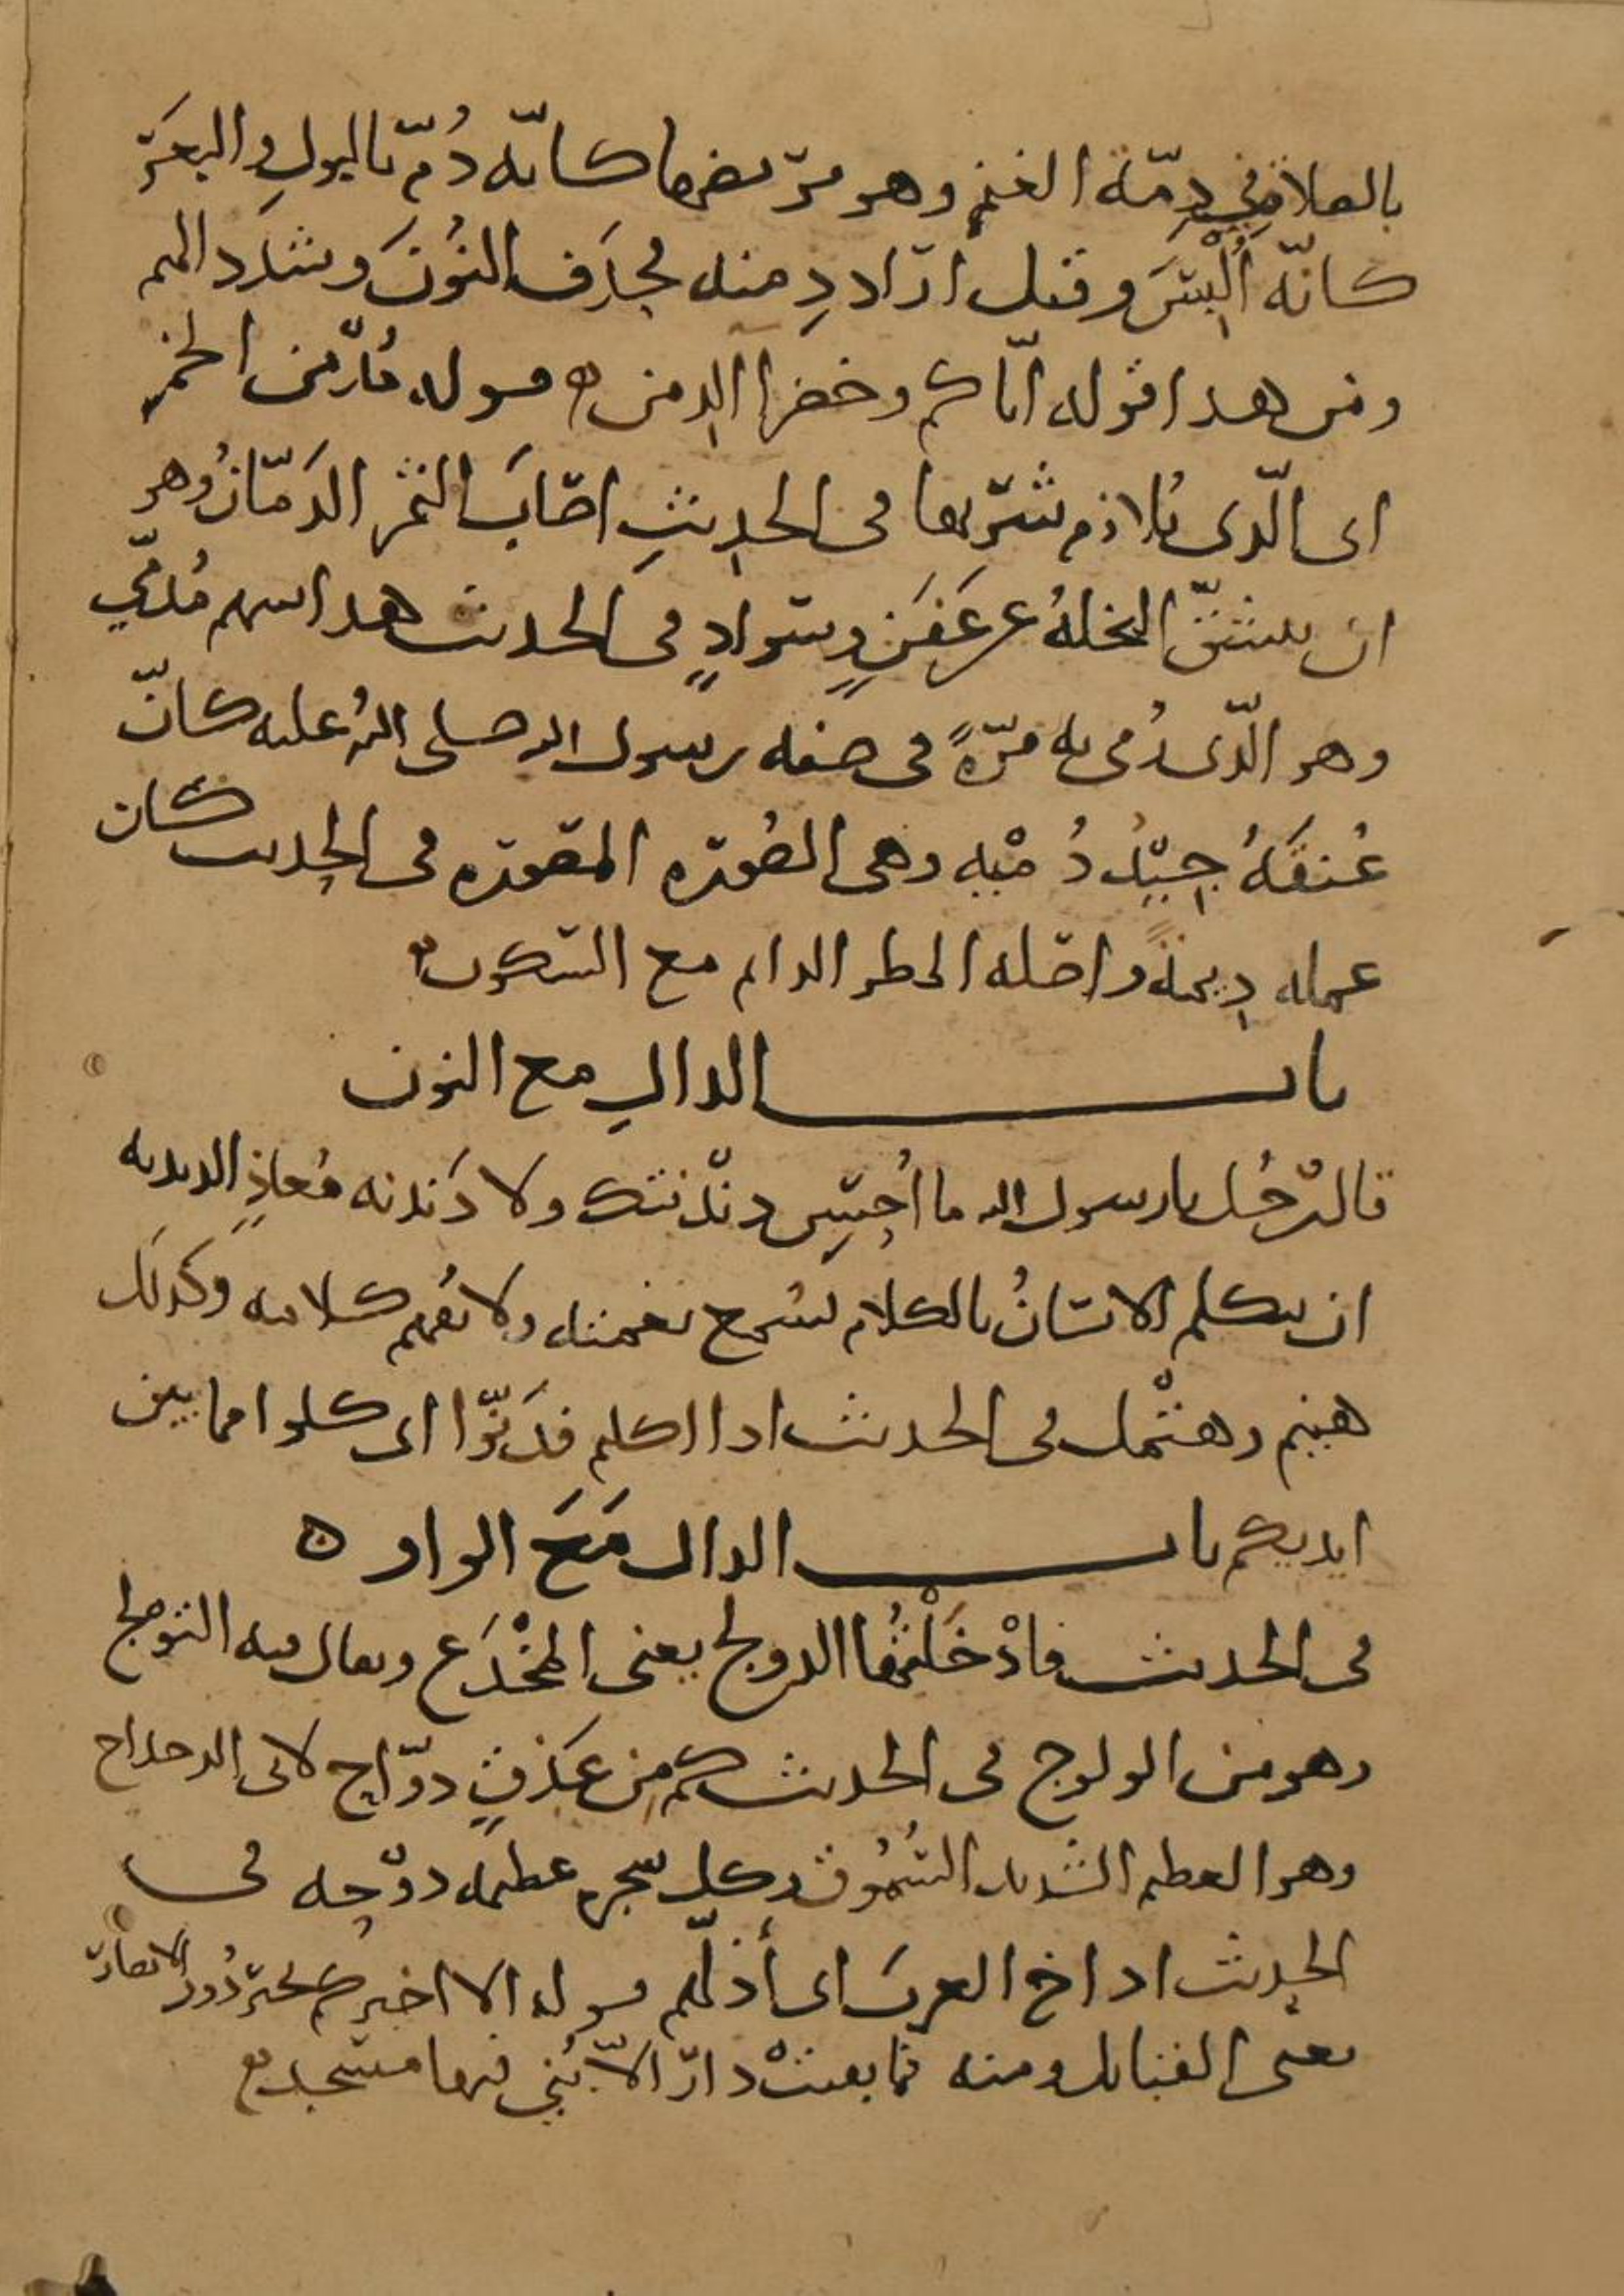 بالصلاة في دِمّة الغنم وهو مربضها كانّه دُمّ بالبول والبعر
كانّه اُلْبِسَ وقيل اراد دِمنه فحذف النُونَ وشدد الميم
ومن هذا قوله اياكم وخضرا الدِمن ه قوله مُدّمن الخمر
اى الّذى يُلازم شربها فى الحديثِ اصَابَ الثمر الدَمَانُ وهو
ان ينشقّ النخلهُ عن عَفَنٍ وسَوادٍ فى الحديث هذا سهم مُدَمّي
وهو الّذى رُمى به مَرّةً فى صفه رسول الله صلى الله عليه كانّ
عُنقهُ جِيْدُ دُمْيه وهى الصُوره المصَوره فى الحديث كان
عمله دِيمَةً واصله المطر الدايم مع السكون ه
باب الدالِ مع النون
قال رجُل يا رسول الله ما اُحْسِن دنْدَنتك ولا دَندنه مُعاذٍ الدندنه
ان يتكلم الانسَانُ بالكلام تسمع نغمته ولا يُفهم كلامه وكذلك
هينم وهتْمل فى الحديث اذا اكلتم فدَنّوا اى كلوا مما بين
ايديكم باب الدال مَعَ الواو ه
فى الحديث فادْخَلْتُها الدولج يعنى المخْدَع ويقال فيه التولج
وهو من الولوج فى الحديث كم مِن عَذقٍ دوّاحٍ لابى الدحداح
وهو العظيم الشديد السُمُوق وكل شجره عظيمه دوْحه فى
الحديث اداخ العربَ اى أذلّهم قوله الا اخبركم بخير دُور الانصار
يعنى القبايل ومنه فما بقيتْ دارٌ الاّ بُنِي فيها مسجد ه